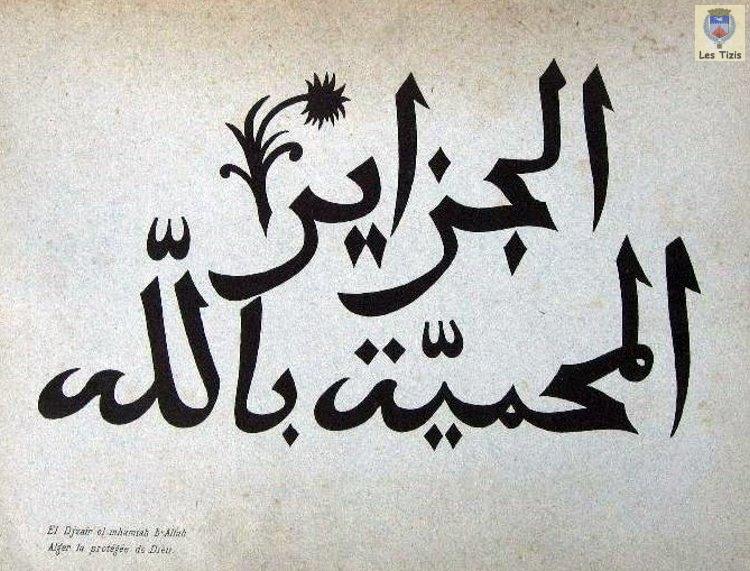 Les Tizis
الجزاير
المحميّة باللّه
El Djzaïr el mhamiah b-Allah
Alger la protégée de Dieu.